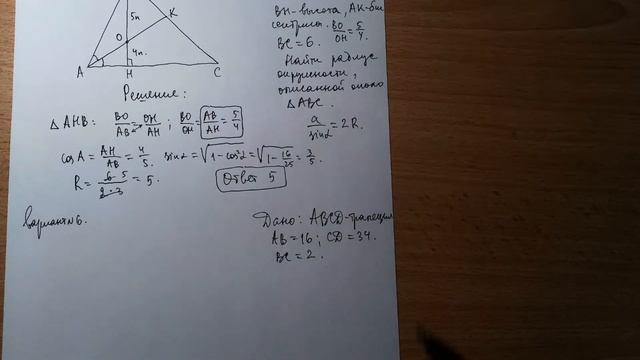 5n
K
O
4n.
A
H
C
BH-высота, AK-бис
сектрисы. BO/OH = 5/4.
BC = 6.
Найти радиус
окружности,
описанной около
△ABC.
Решение:
△AHB: BO/AB = OH/AH ; BO/OH = AB/AH = 5/4
a/sinα = 2R.
cosA = AH/AB = 4/5. sinα = √1-cos²α = √1-16/25 = 3/5.
R = 6·5/2·3 = 5.
Ответ 5
Вариант 6.
Дано: ABCD-трапеция
AB = 16; CD = 34.
BC = 2.